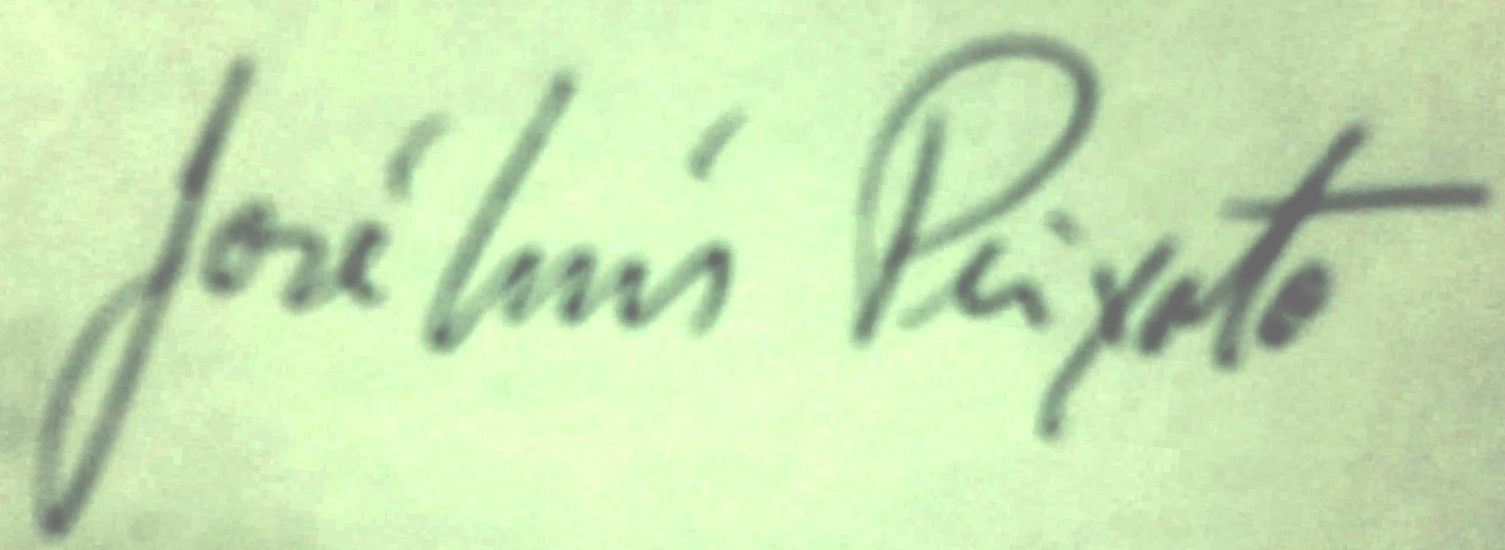 José Luís Peixoto